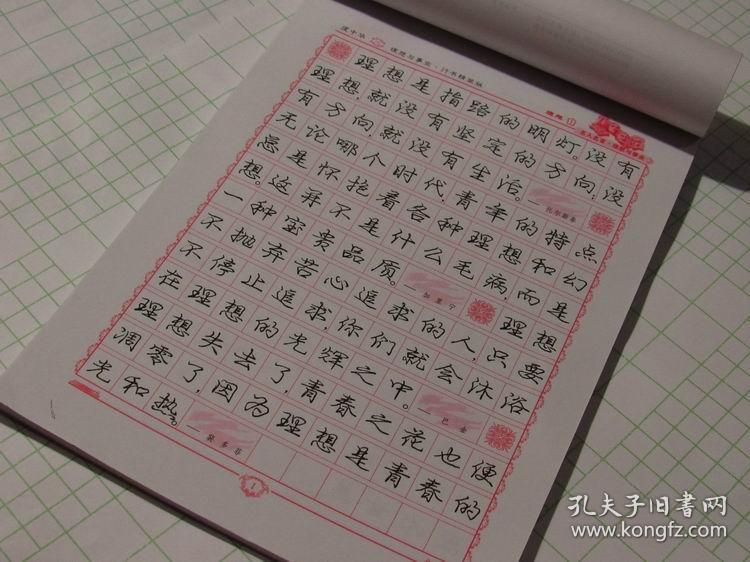 理想是指路的明灯。没有
理想,就没有坚定的方向;没
有方向,就没有生活。—托尔斯泰
无论哪个时代,青年的特点
总是怀抱着各种理想和幻
想。这并不是什么毛病,而是
一种宝贵品质。—加里宁 理想
不抛弃苦心追求的人,只要
不停止追求,你们就会沐浴
在理想的光辉之中。—巴金
理想失去了,青春之花也便
凋零了,因为理想是青春的
光和热。—裴多菲
1
孔夫子旧书网
www.kongfz.com